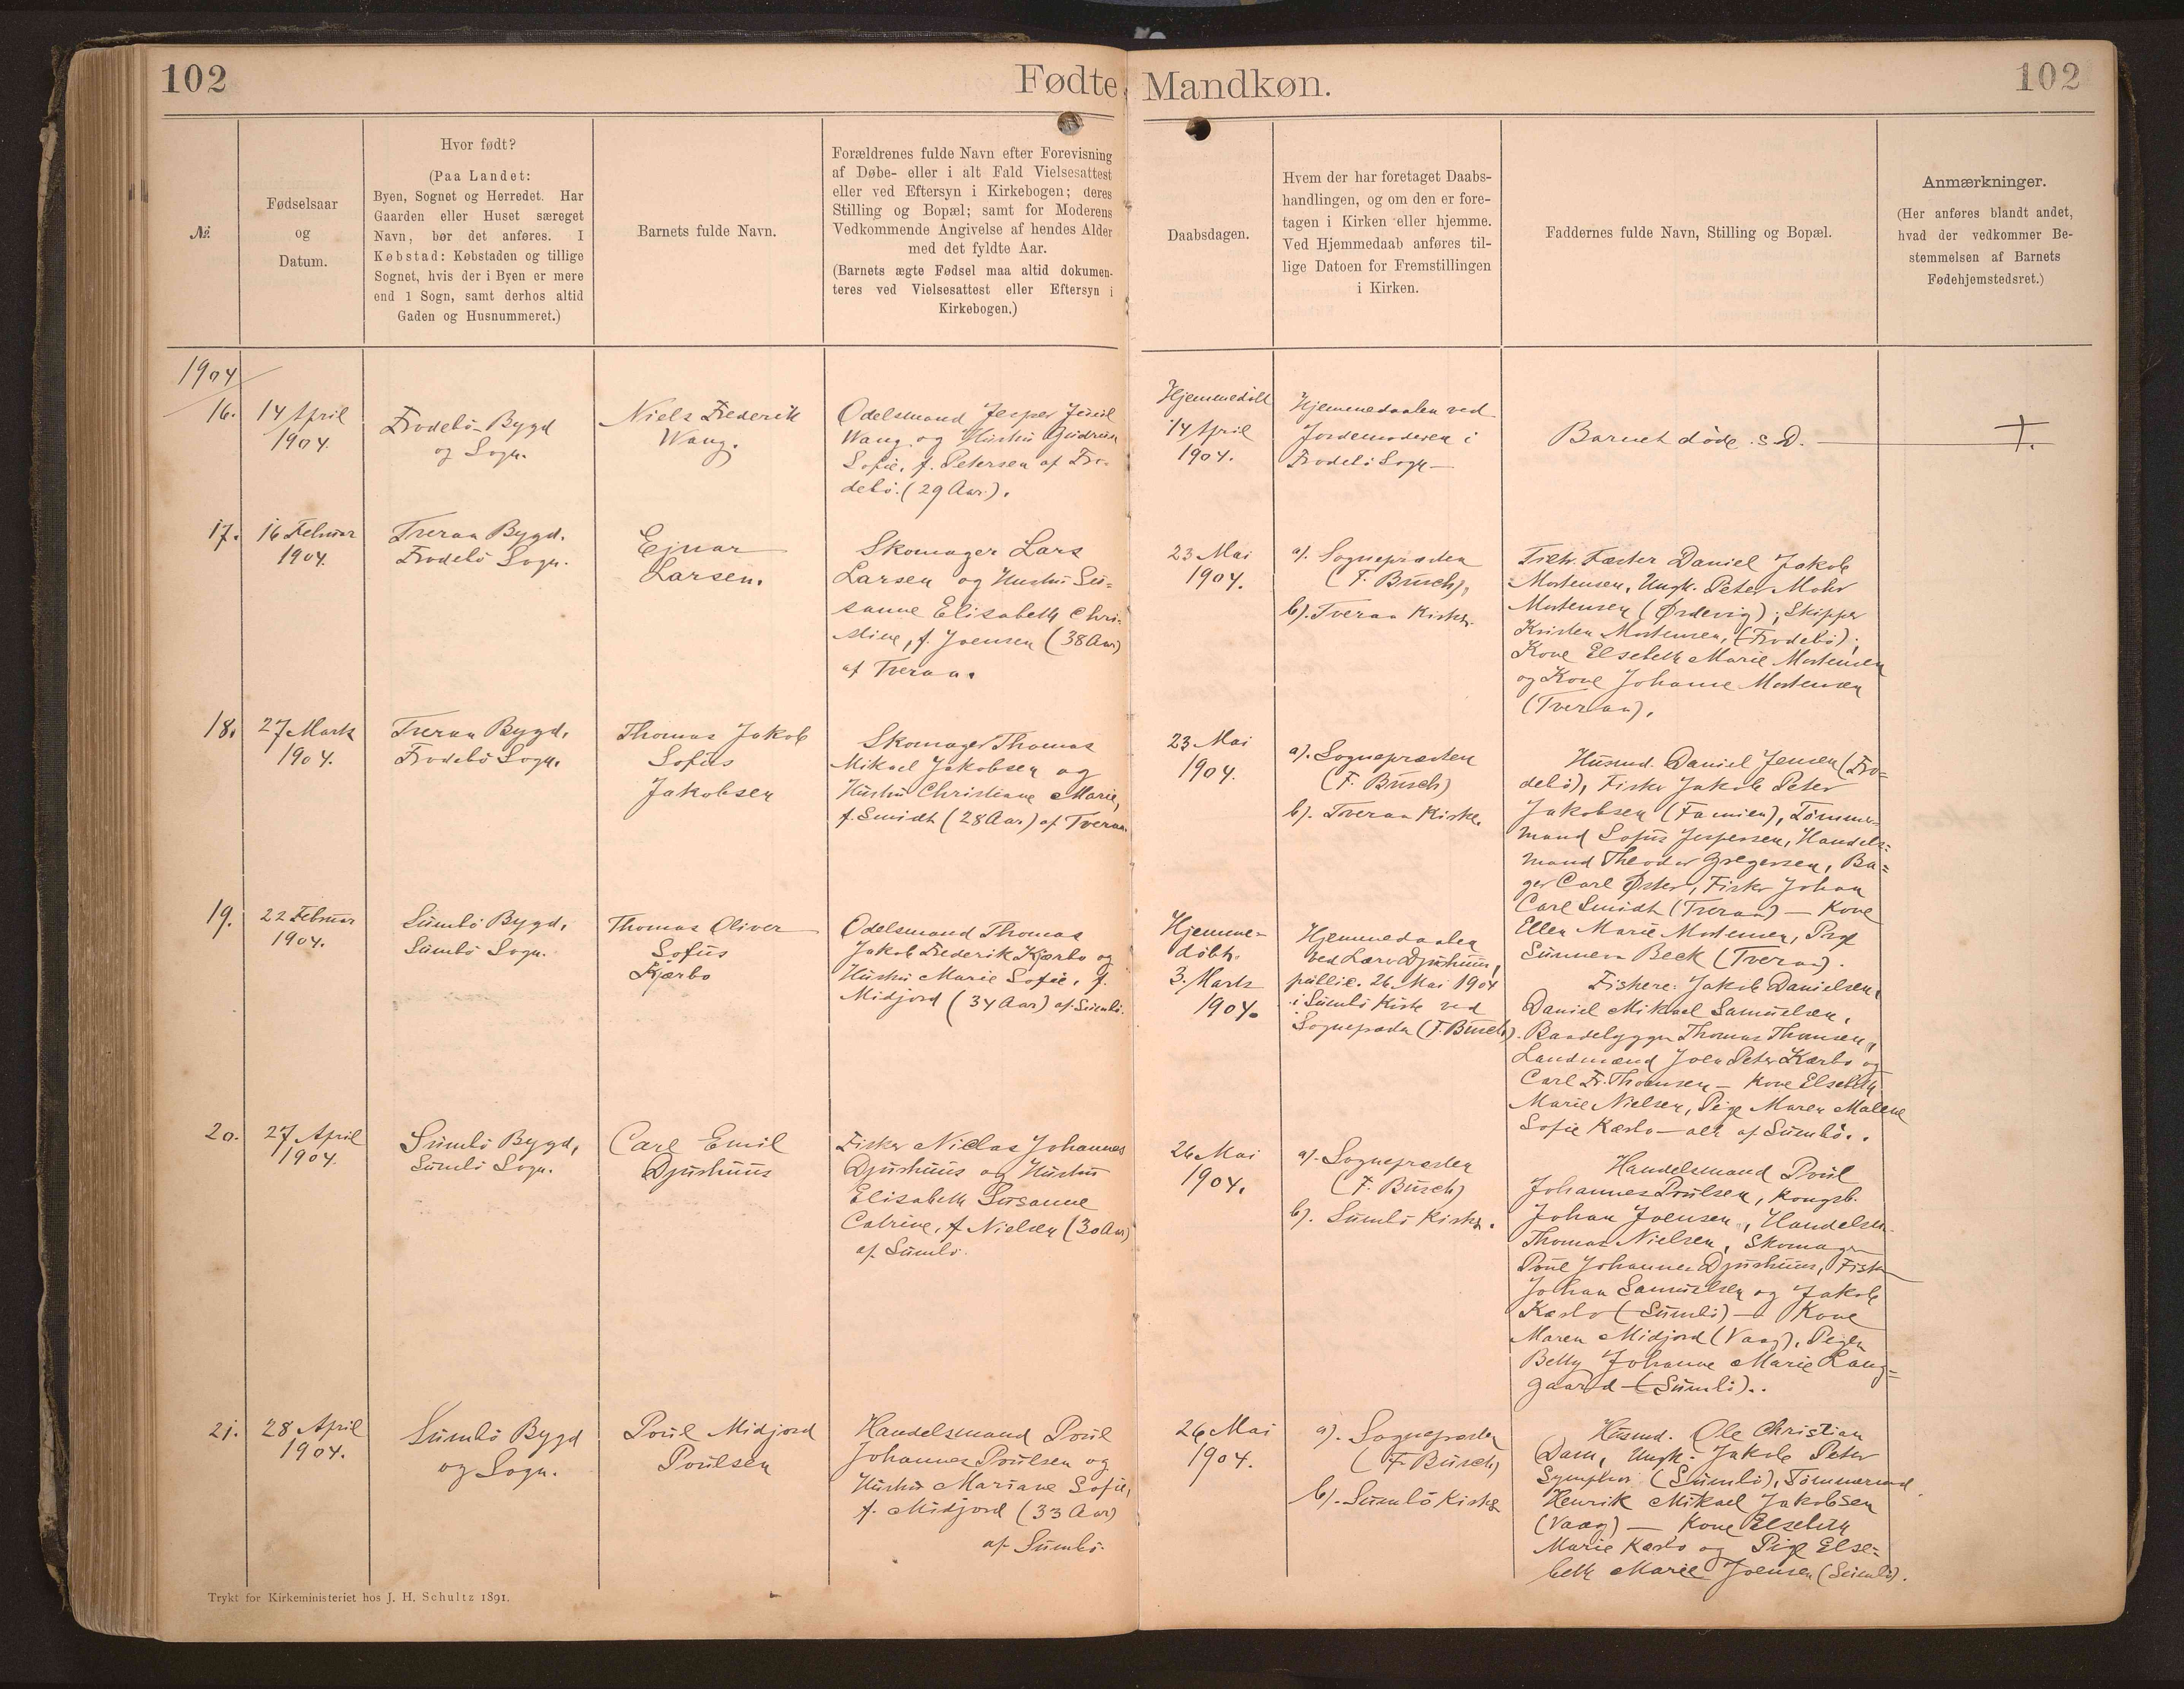 102
Fødte, Mandkøn.
102
№.
Fødselsaar
og
Datum.
Hvor født?
(Paa Landet:
Byen, Sognet og Herredet. Har
Gaarden eller Huset særeget
Navn, bør det anføres. I
Købstad: Købstaden og tillige
Sognet, hvis der i Byen er mere
end 1 Sogn, samt derhos altid
Gaden og Husnummeret.)
Barnets fulde Navn.
Forældrenes fulde Navn efter Forevisning
af Døbe- eller i alt Fald Vielsesattest
eller ved Eftersyn i Kirkebogen; deres
Stilling og Bopæl; samt for Moderens
Vedkommende Angivelse af hendes Alder
med det fyldte Aar.
(Barnets ægte Fødsel maa altid dokumen-
teres ved Vielsesattest eller Eftersyn i
Kirkebogen.)
Daabsdagen.
Hvem der har foretaget Daabs-
handlingen, og om den er fore-
tagen i Kirken eller hjemme.
Ved Hjemmedaab anføres til-
lige Datoen for Fremstillingen
i Kirken.
Faddernes fulde Navn, Stilling og Bopæl.
Anmærkninger.
(Her anføres blandt andet,
hvad der vedkommer Be-
stemmelsen af Barnets
Fødehjemstedsret.)
1904
16.
14 April
1904.
Frodebö Bygd
og Sogn.
Niels Frederik
Wang.
Odelsmand Jesper Juul
Wang og Hustru Gudrun
Sofie, f. Petersen af Fro-
debö. (29 Aar).
Hjemmedöbt
14 April
1904.
Hjemmedaaben ved
Jordemoderen i
Frodebö Sogn
Barnet döde s. D.
†.
17.
16 Februar
1904.
Tveraa Bygd.
Frodebö Sogn.
Ejnar
Larsen.
Skomager Lars
Larsen og Hustru Su-
sanne Elisabeth Chri-
stine, f. Joensen (38 Aar)
af Tveraa.
23 Mai
1904.
a). Sognepræsten
(F. Busch),
b). Tveraa Kirke.
Fæster Daniel Jakob
Mortensen, Ungk. Peter Mohr
Mortensen (Ørdevig); Skipper
Kristen Mortensen, (Frodebö);
Kone Elsebeth Marie Mortensen
og Kone Johanne Mortensen
(Tveraa).
18.
27 Marts
1904.
Tveraa Bygd,
Frodebö Sogn.
Thomas Jakob
Sofus
Jakobsen
Skomager Thomas
Mikael Jakobsen og
Hustru Christiane Marie,
f. Smidt (28 Aar) af Tveraa.
23 Mai
1904.
a). Sognepræsten
(F. Busch)
b). Tveraa Kirke.
Husmd. Daniel Jensen (Fro-
debö), Fisker Jakob Peter
Jakobsen (Famien), Tömmer-
mand Sofus Jespersen, Handels-
mand Theodor Gregersen, Ba-
ger Carl Øster, Fisker Johan
Carl Smidt (Tveraa) — Kone
Ellen Marie Mortensen, Pige
Sunneva Beck (Tveraa).
19.
22 Februar
1904.
Sumbö Bygd,
Sumbö Sogn.
Thomas Oliver
Sofus
Kjærbo
Odelsmand Thomas
Jakob Frederik Kjærbo og
Hustru Marie Sofie, f.
Midjord (34 Aar) af Sumbö.
Hjemme-
döbt.
3. Marts
1904.
Hjemmedaaben
ved Lærer Djurhuus,
public. 26 Mai 1904
i Sumbö Kirke ved
Sognepræsten (F. Busch).
Fiskere: Jakob Danielsen,
Daniel Mikael Samuelsen,
Baadebygger Thomas Thomsen,
Landmænd Joen Peter Kærbo og
Carl Fr. Thomsen — Kone Elsebeth
Marie Nielsen, Pige Maren Malene
Sofie Kærbo — alle af Sumbö.
20.
27 April
1904.
Sumbö Bygd,
Sumbö Sogn.
Carl Emil
Djurhuus
Fisker Niclas Johannes
Djurhuus og Hustru
Elisabeth Susanne
Catrine, f. Nielsen (30 Aar)
af Sumbö.
26 Mai
1904.
a). Sognepræsten
(F. Busch)
b). Sumbö Kirke.
Handelsmand Poul
Johannes Poulsen, Kongsb.
Johan Joensen, Handelsm.
Thomas Nielsen, Skomager
Poul Johannes Djurhuus, Fisker
Johan Samuelsen og Jakob
Kærbo (Sumbö) — Kone
Maren Midjord (Vaag), Pigen
Betty Johanne Marie Lang-
gaard (Sumbö).
21.
28 April
1904.
Sumbö Bygd
og Sogn.
Poul Midjord
Poulsen
Handelsmand Poul
Johannes Poulsen og
Hustru Mariane Sofie,
f. Midjord (33 Aar)
af Sumbö.
26 Mai
1904.
a). Sognepræsten
(F. Busch)
b). Sumbö Kirke
Husmd. Ole Christian
Dam, Ungk. Jakob Peter
(Sumbö), Tömmermd.
Henrik Mikael Jakobsen
(Vaag) — Kone Elsebeth
Marie Kærbo og Pige Else-
beth Marie Joensen (Sumbö).
Trykt for Kirkeministeriet hos J. H. Schultz 1891.